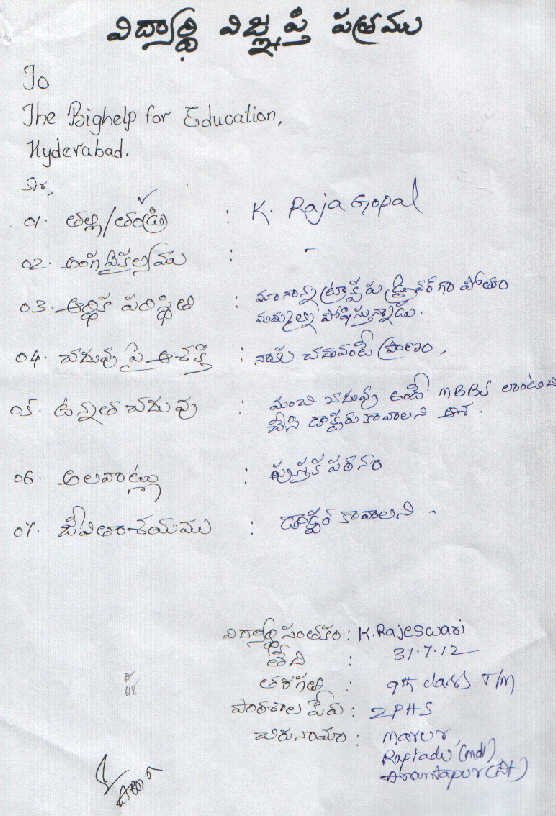 విద్యార్థి విజ్ఞప్తి పత్రము
To
The Bighelp for Education,
Hyderabad.
Sir,
01. తల్లి/తండ్రి : K. Raja Gopal
02. అంగవైకల్యము : -
03. ఆర్థిక పరిస్థితి : మా నాన్న ట్రాక్టరు డ్రైవర్ గా పోతూ
మమ్మల్ని పోషిస్తున్నాడు.
04. చదువు పై ఆసక్తి : నాకు చదువంటే ప్రాణం.
05. ఉన్నత చదువు : మంచి చదువు అంటే MBBS లాంటివి
చేసి డాక్టరు కావాలని ఆశ.
06 అలవాట్లు : పుస్తక పఠనం
07. జీవితాశయము : డాక్టర్ కావాలని.
విద్యార్థి సంతకం : K. Rajeswari
తేది : 31-7-12
తరగతి : 9th class T/M
పాఠశాల పేరు : ZPHS
చిరునామా : Marur,
Raptadu (mdl)
Anantapur (dt)